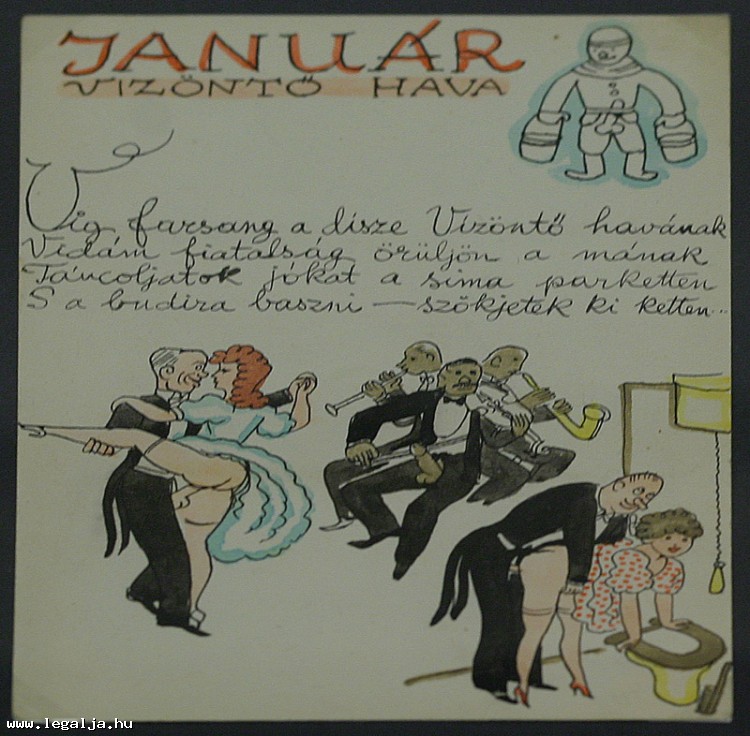 JANUÁR
VIZÖNTŐ HAVA
Víg farsang a dísze Vizöntő havának
Vidám fiatalság örüljön a mának
Táncoljatok jókat a sima parketten
S a budira baszni — szökjetek ki ketten..
www.legalja.hu